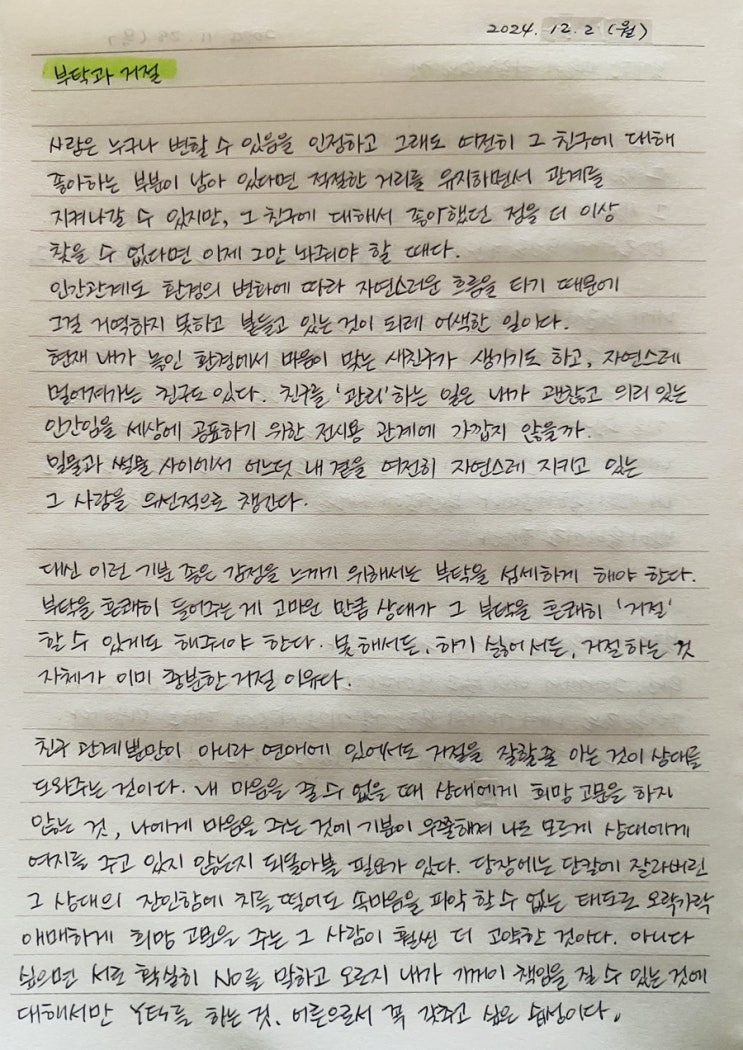 2024. 12. 2 (월)
부탁과 거절
사람은 누구나 변할 수 있음을 인정하고 그래도 여전히 그 친구에 대해
좋아하는 부분이 남아 있다면 적절한 거리를 유지하면서 관계를
지켜나갈 수 있지만, 그 친구에 대해서 좋아했던 점을 더 이상
찾을 수 없다면 이제 그만 놔줘야 할 때다.
인간관계도 환경의 변화에 따라 자연스러운 흐름을 타기 때문에
그걸 거역하지 못하고 붙들고 있는 것이 되레 어색한 일이다.
현재 내가 놓인 환경에서 마음이 맞는 새친구가 생기기도 하고, 자연스레
멀어져가는 친구도 있다. 친구를 '관리'하는 일은 내가 괜찮고 의리 있는
인간임을 세상에 공표하기 위한 전시용 관계에 가깝지 않을까.
밀물과 썰물 사이에서 어느덧 내 곁을 여전히 자연스레 지키고 있는
그 사람을 우선적으로 챙긴다.
대신 이런 기분 좋은 감정을 느끼기 위해서는 부탁을 섬세하게 해야 한다.
부탁을 흔쾌히 들어주는 게 고마운 만큼 상대가 그 부탁을 흔쾌히 '거절'
할 수 있게도 해줘야 한다. 못해서든, 하기 싫어서든, 거절하는 것
자체가 이미 충분한 거절 이유다.
친구 관계뿐만이 아니라 연애에 있어서도 거절을 잘할줄 아는 것이 상대를
도와주는 것이다. 내 마음을 줄 수 없을 때 상대에게 희망 고문을 하지
않는 것, 나에게 마음을 주는 것에 기분이 우쭐해져 나도 모르게 상대에게
여지를 주고 있지 않는지 되돌아볼 필요가 있다. 당장에는 단칼에 잘라버린
그 상대의 잔인함에 치를 떨어도 속마음을 파악 할 수 없는 태도로 오락가락
애매하게 희망 고문을 주는 그 사람이 훨씬 더 고약한 것이다. 아니다
싶으면 서로 확실히 NO를 말하고 오르지 내가 기꺼이 책임을 질 수 있는 것에
대해서만 YES를 하는 것. 어른으로서 꼭 갖추고 싶은 습성이다.